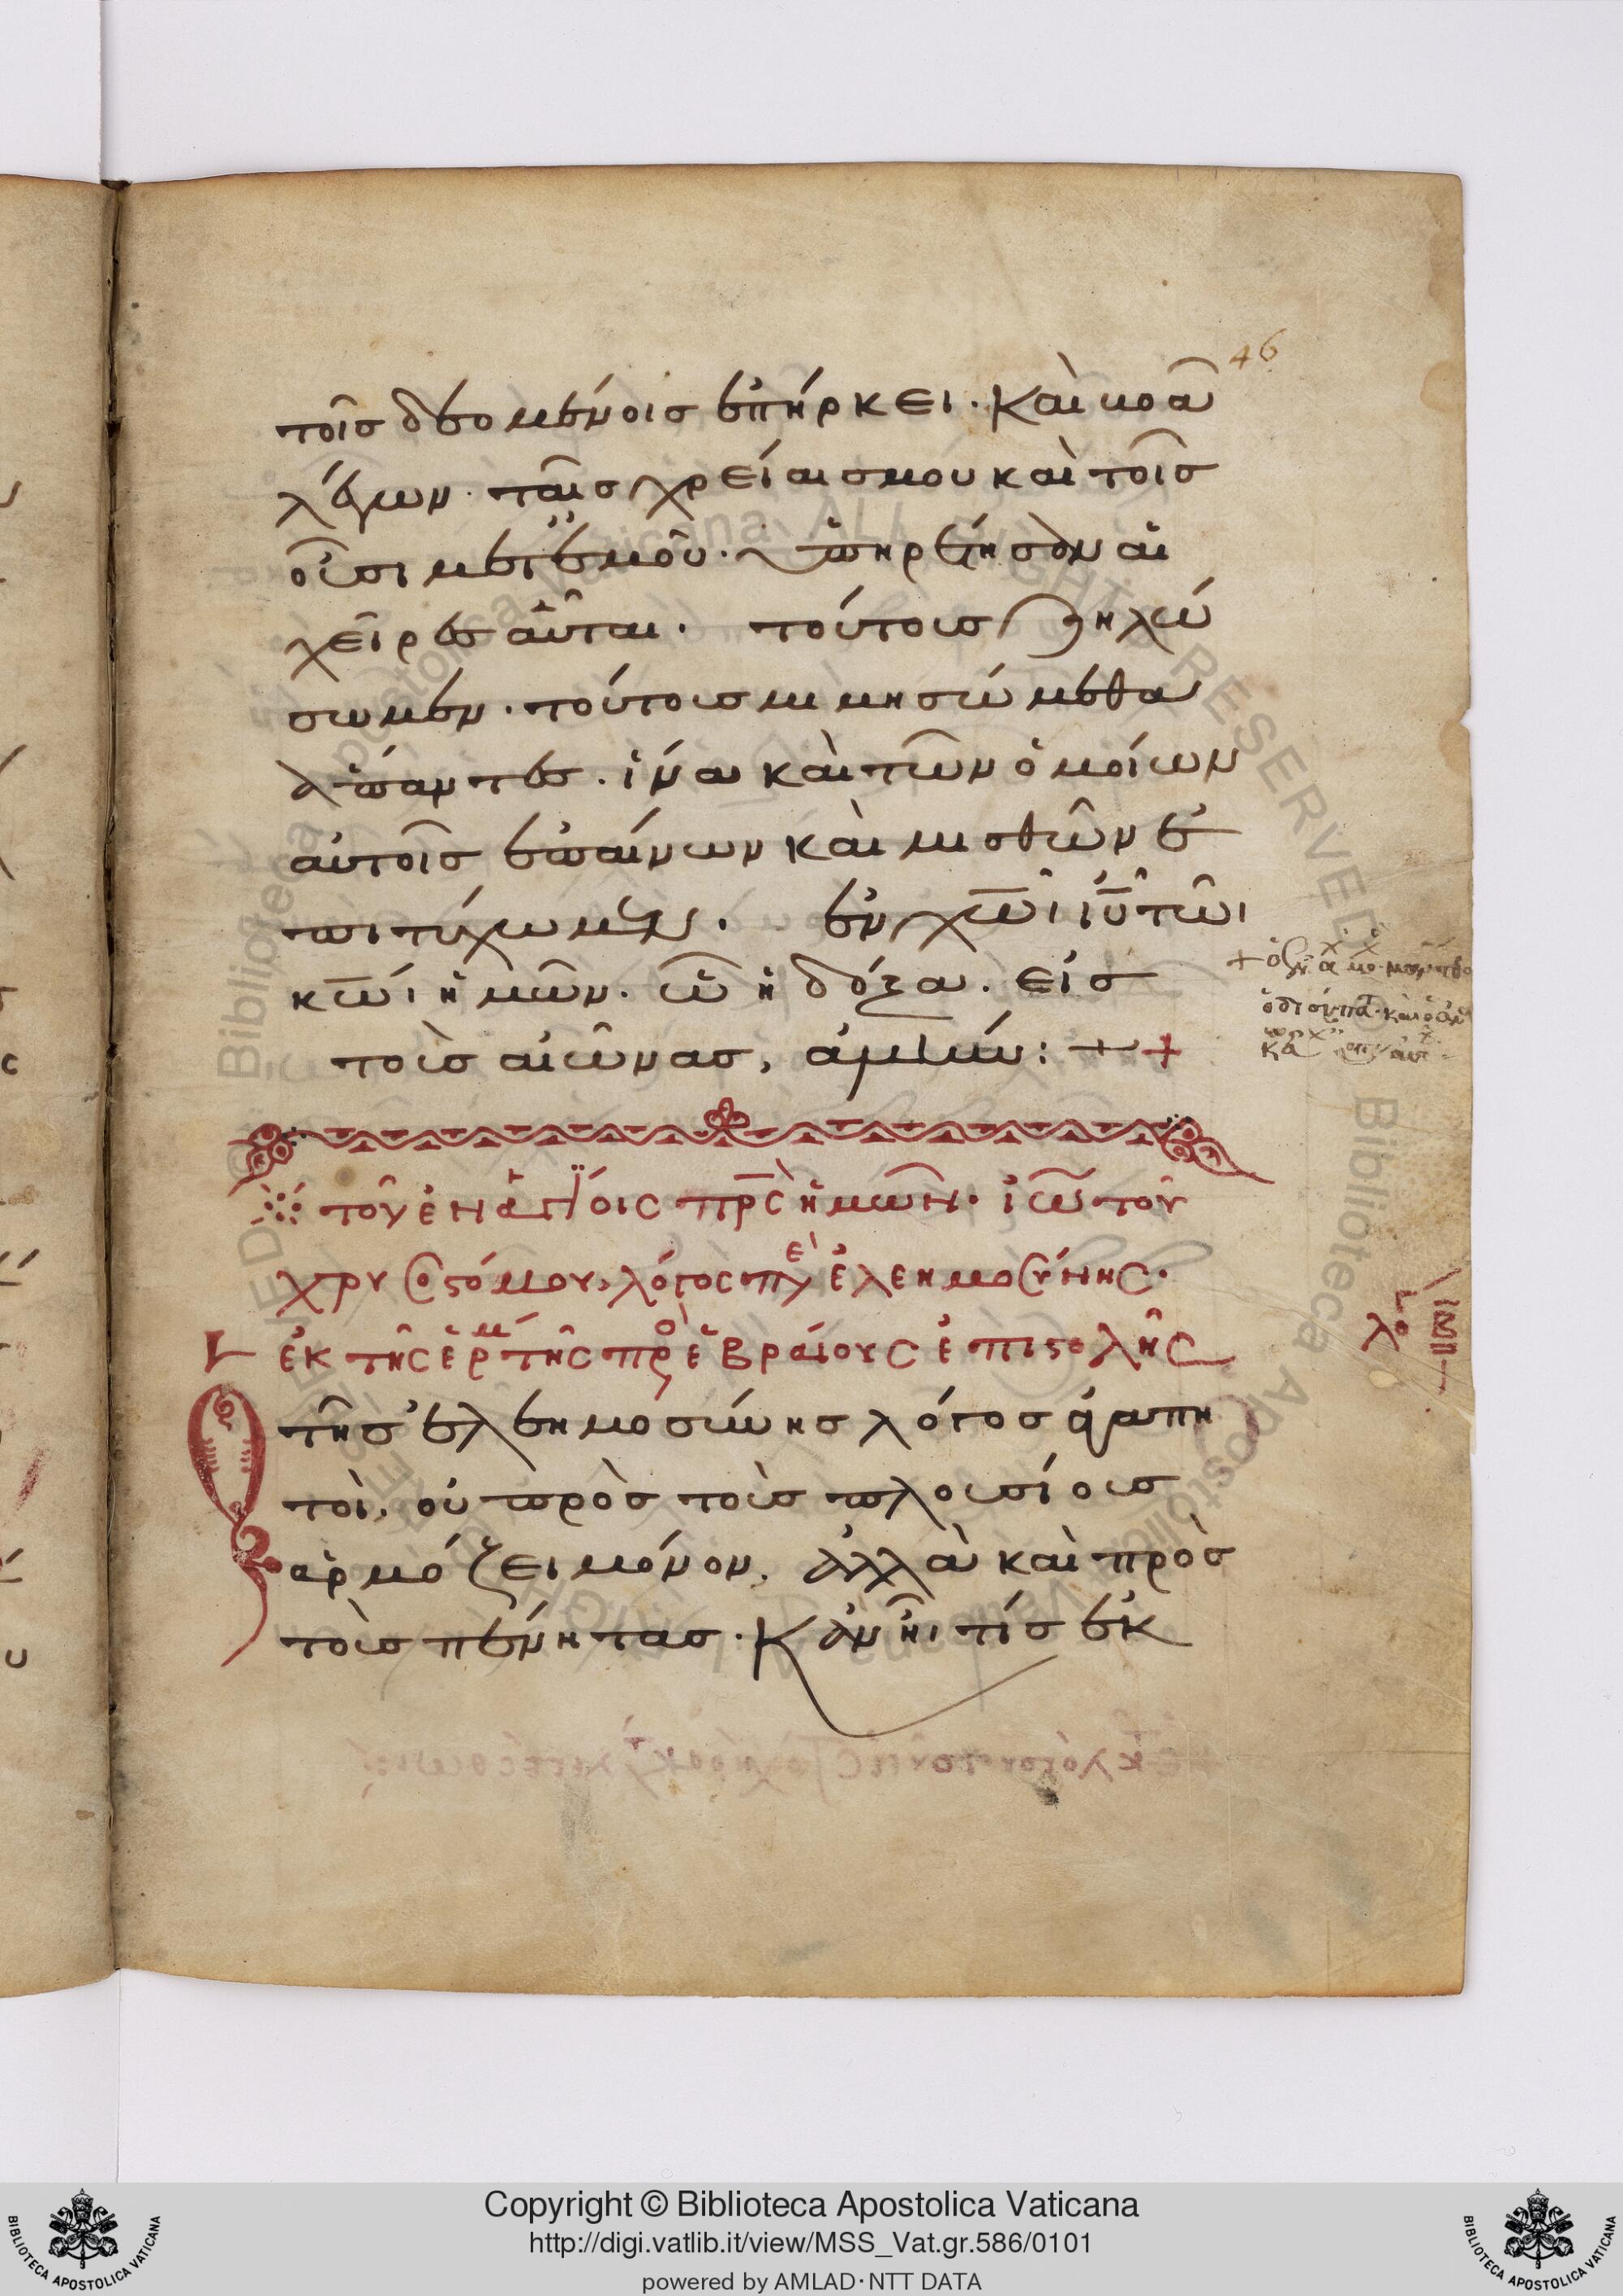 46
τοῖς δεομένοις ἐπήρκει. Καὶ πρα
λέγων. ταῖς χρείαις μου καὶ τοῖς
οὖσι μετ' ἐμοῦ. ὑπηρέτησαν αἱ
χεῖρες αὗται. τούτους ζηλώ
σωμεν. τούτους μιμησώμεθα
ἅπαντες. ἵνα καὶ τῶν ὁμοίων
αὐτοῖς ἐπαίνων καὶ μισθῶν ἐ
πιτύχωμεν. ἐν χω̅ι ιυ̅ τῶι
κω̅ι ἡμῶν. ὧ ἡ δόξα. εἰς
τοὺς αἰῶνας, ἀμήν: +
τοῦ ἐν ἁγίοις πρ̅ς ἡμῶν. ἰω̅ τοῦ
χρυσοστόμου, λόγος περὶ ἐλεημοσύνης.
ἐκ τῆς ἑρμ τῆς πρὸς ἑβραίους ἐπιστολῆς
Ὁ τῆς ἐλεημοσύνης λόγος ἀγαπη
τοὶ, οὐ πρὸς τοὺς πλουσίους
ἁρμόζει μόνον, ἀλλὰ καὶ πρὸς
τοὺς πένητας. Κἂν ἦι τίς ἐκ
λογ ιβ
Copyright © Biblioteca Apostolica Vaticana
http://digi.vatlib.it/view/MSS_Vat.gr.586/0101
powered by AMLAD·NTT DATA
BIBLIOTECA APOSTOLICA VATICANA
BIBLIOTECA APOSTOLICA VATICANA